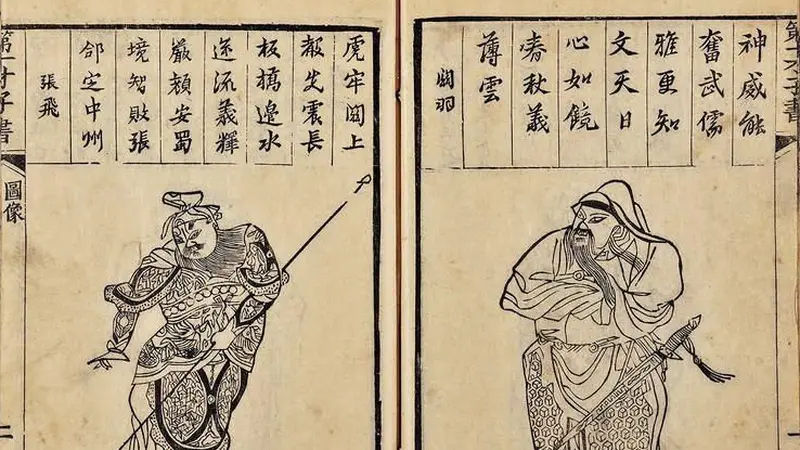 第一才子書
神威能
奮武儒
雅更知
文天日
心如鏡
春秋義
薄雲
関羽
一
虎牢関上
聲先震長
板橋邉水
逆流義釋
嚴顔安蜀
境智敗張
郃定中州
張飛
第一才子書
圖像
二